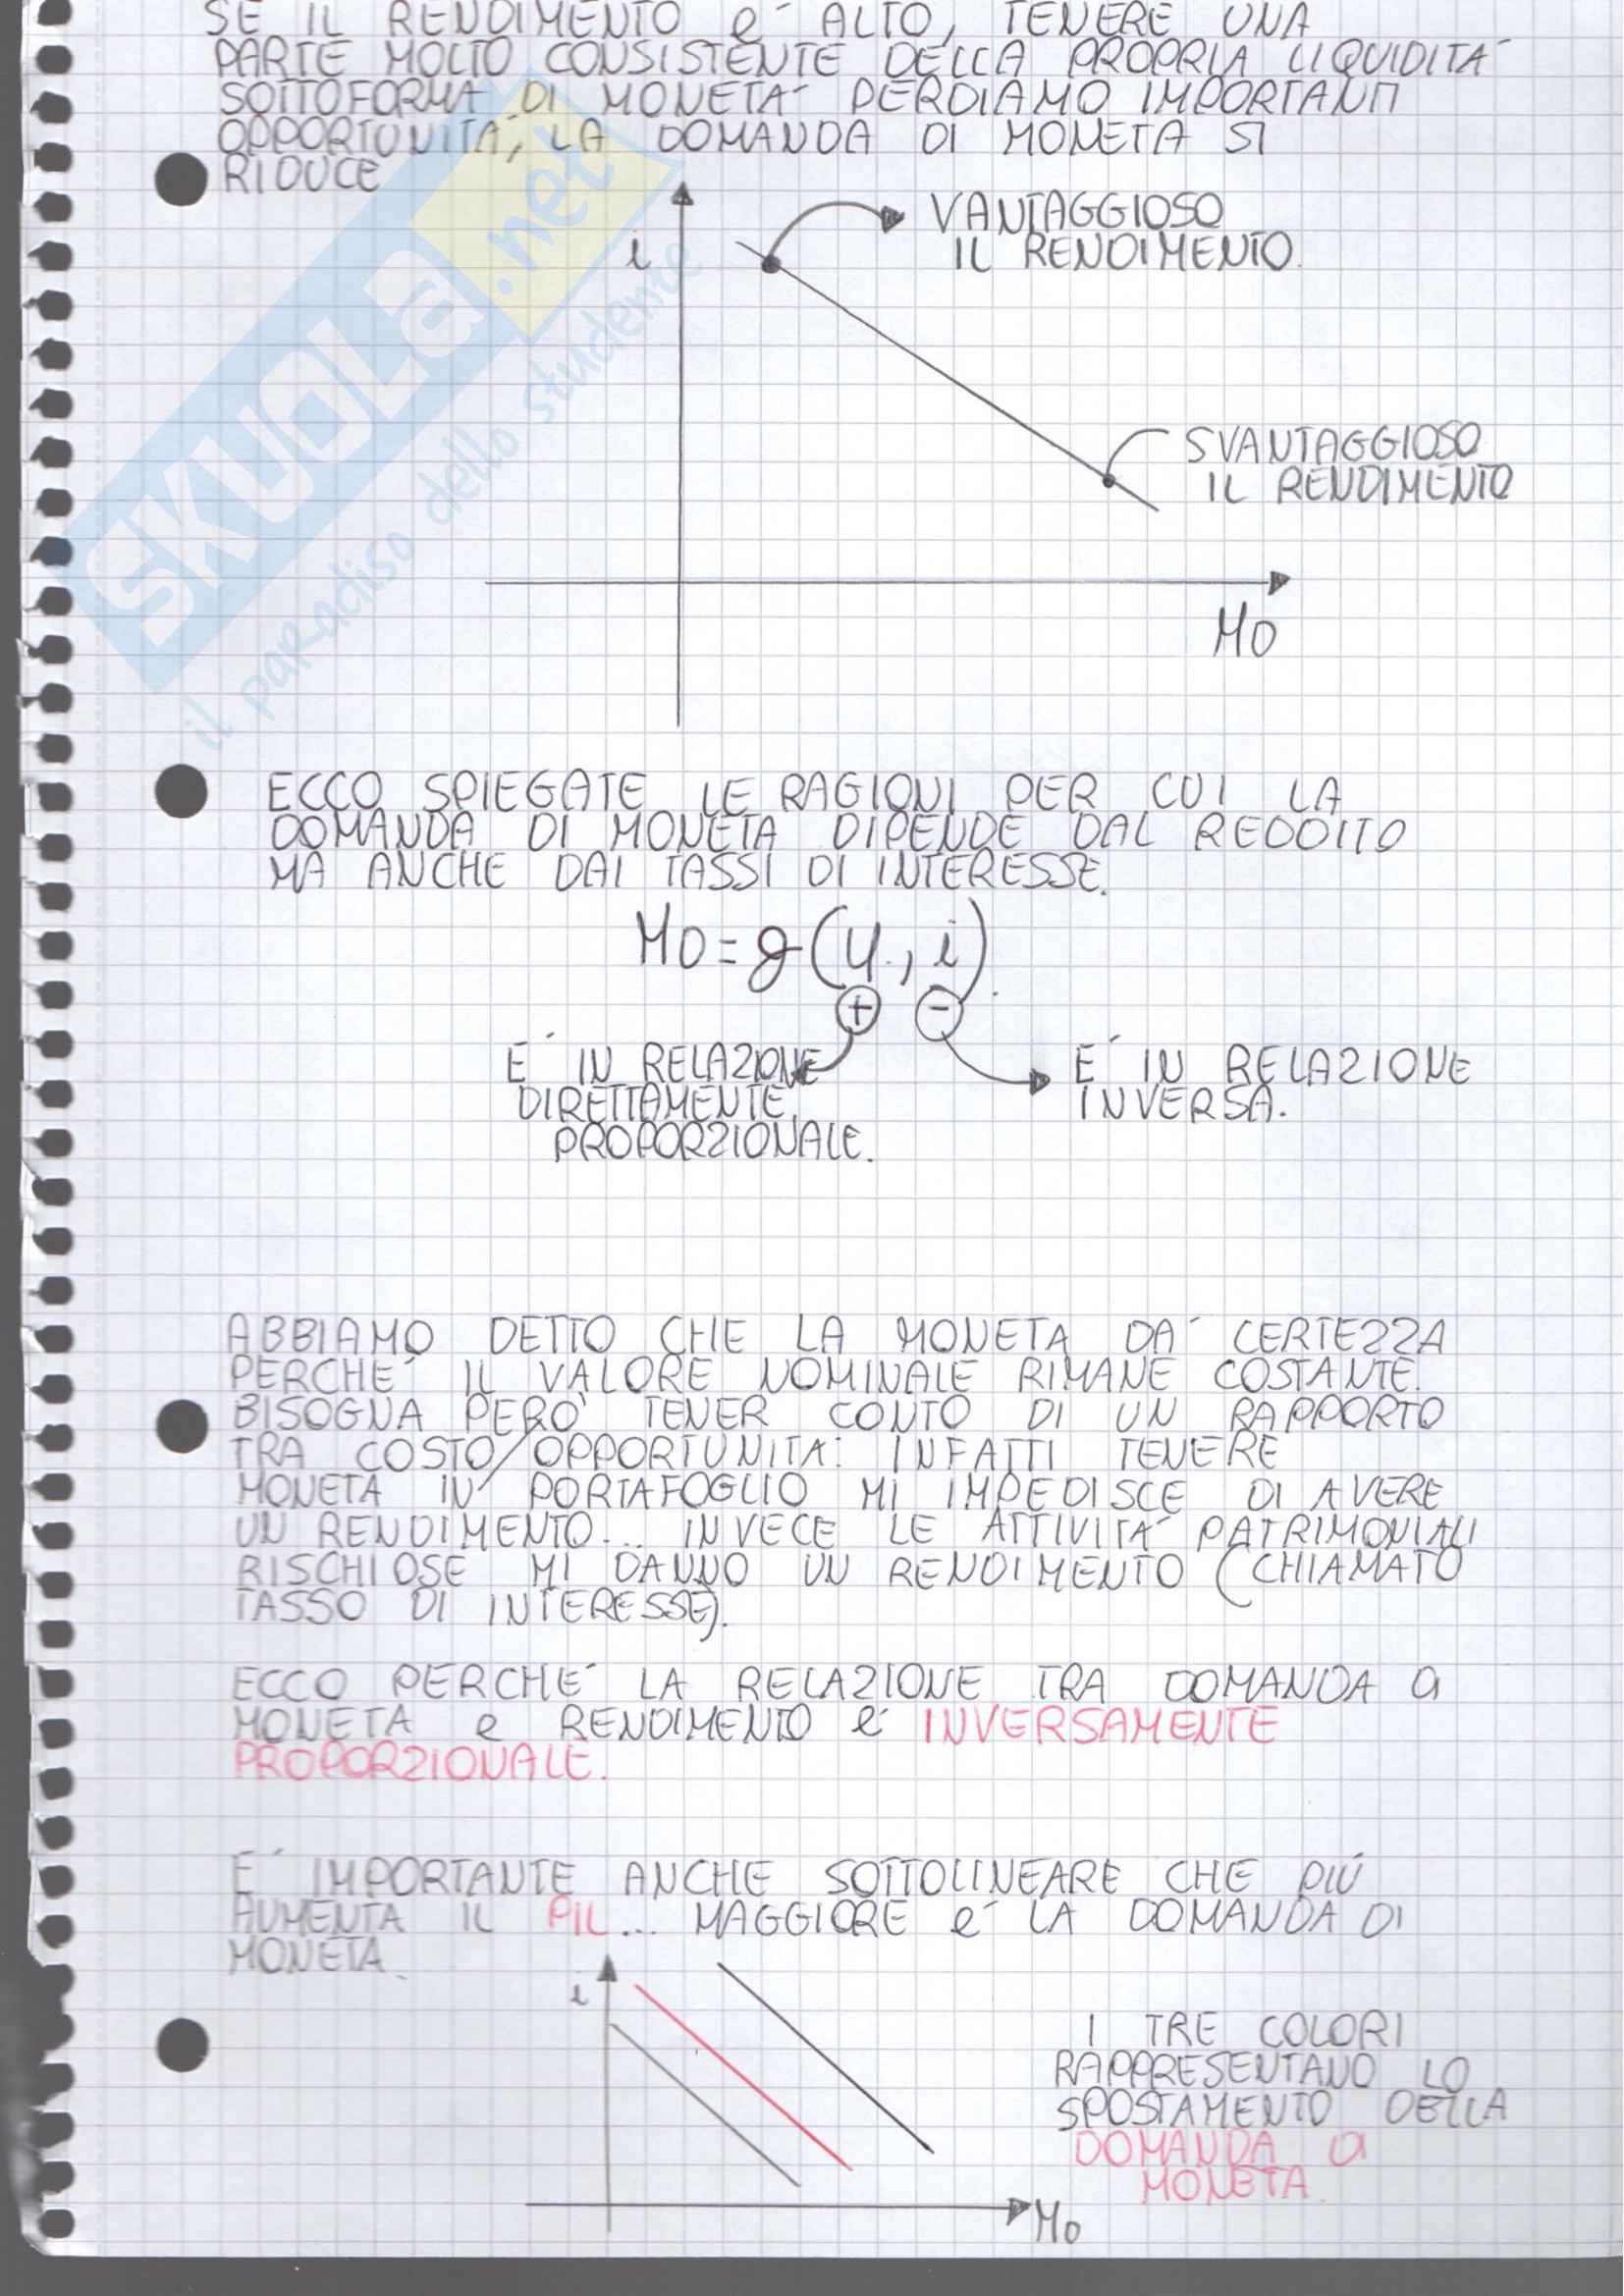 SE IL RENDIMENTO e´ ALTO, TENERE UNA
PARTE MOLTO CONSISTENTE DELLA PROPRIA LIQUIDITA´
SOTTOFORMA DI MONETA´ PERDIAMO IMPORTANTI
OPPORTUNITA´, LA DOMANDA DI MONETA SI
RIDUCE
i
VANTAGGIOSO
IL RENDIMENTO.
SVANTAGGIOSO
IL RENDIMENTO
MD
SKUOLA.net
il paradiso dello studente
ECCO SPIEGATE LE RAGIONI PER CUI LA
DOMANDA DI MONETA DIPENDE DAL REDDITO
MA ANCHE DAI TASSI DI INTERESSE.
MD = g (Y, i)
+ -
E´ IN RELAZIONE
DIRETTAMENTE
PROPORZIONALE.
E´ IN RELAZIONE
INVERSA.
ABBIAMO DETTO CHE LA MONETA DA´ CERTEZZA
PERCHE´ IL VALORE NOMINALE RIMANE COSTANTE.
BISOGNA PERO´ TENER CONTO DI UN RAPPORTO
TRA COSTO/OPPORTUNITA´. INFATTI TENERE
MONETA IN PORTAFOGLIO MI IMPEDISCE DI AVERE
UN RENDIMENTO... INVECE LE ATTIVITA´ PATRIMONIALI
RISCHIOSE MI DANNO UN RENDIMENTO (CHIAMATO
TASSO DI INTERESSE).
ECCO PERCHE´ LA RELAZIONE TRA DOMANDA DI
MONETA e RENDIMENTO e´ INVERSAMENTE
PROPORZIONALE.
E´ IMPORTANTE ANCHE SOTTOLINEARE CHE PIÙ
AUMENTA IL PIL... MAGGIORE e´ LA DOMANDA DI
MONETA.
i
I TRE COLORI
RAPPRESENTANO LO
SPOSTAMENTO DELLA
DOMANDA DI
MONETA.
MD